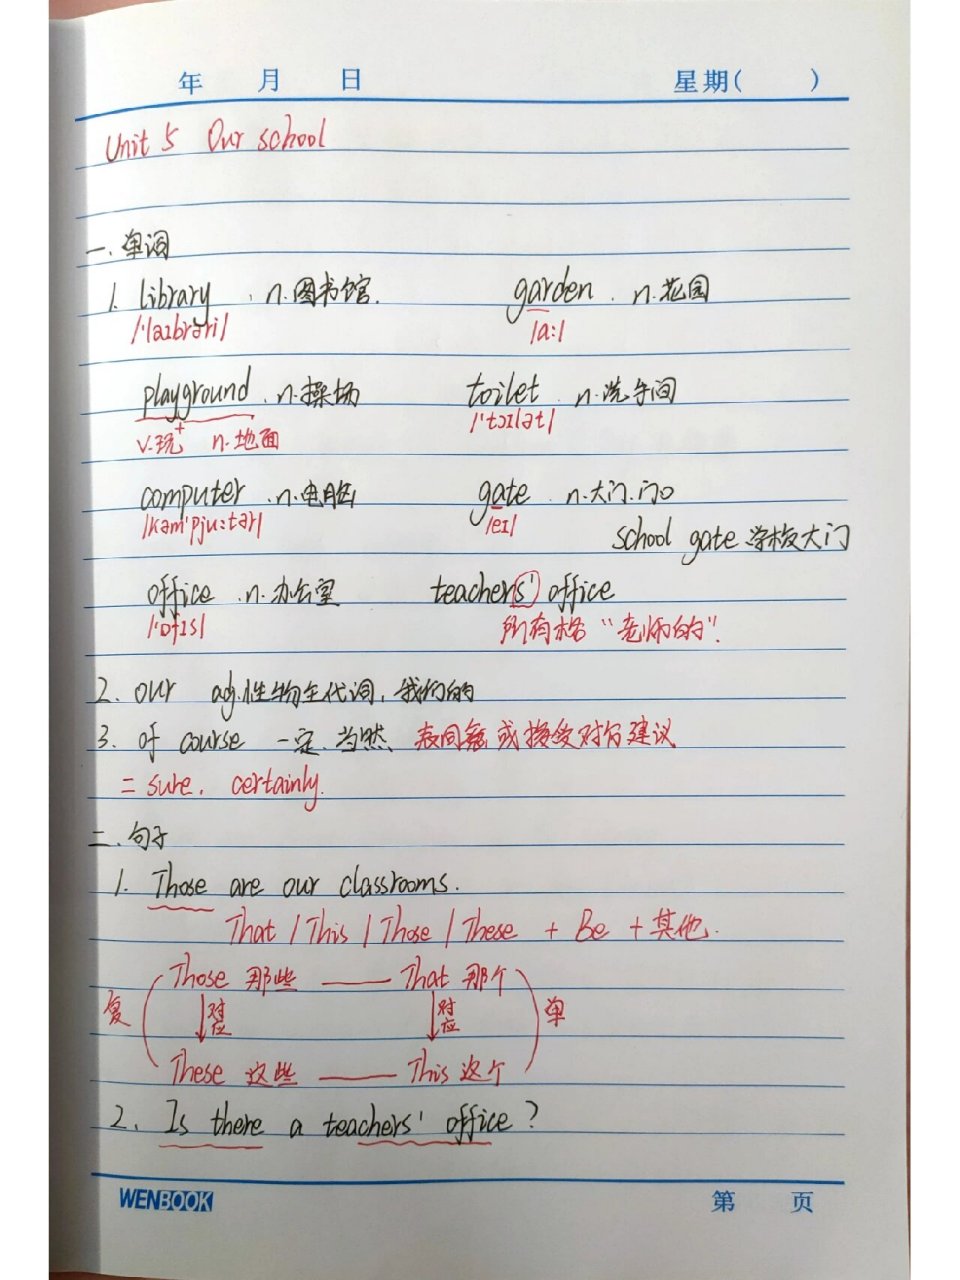 年 月 日 星期( )
Unit 5 Our school
一. 单词
1. library . n.图书馆. garden . n.花园
/ˈlaɪbrəri/ /ɑː/
playground . n.操场 toilet . n.洗手间
v.玩 + n.地面 /ˈtɔɪlət/
computer . n.电脑 gate . n.大门.门口
/kəmˈpjuːtər/ /eɪ/
school gate 学校大门
office . n.办公室 teachers' office
/ˈɒfɪs/ 所有格 “老师的”.
2. our adj.性物主代词, 我们的
3. of course 一定、当然、表同意或接受对方建议
= sure. certainly.
二. 句子
1. Those are our classrooms.
That / This / Those / These + Be + 其他.
Those 那些 —— That 那个
复 ↓对应 ↓对应 单
These 这些 —— This 这个
2. Is there a teachers' office ?
WENBOOK 第 页